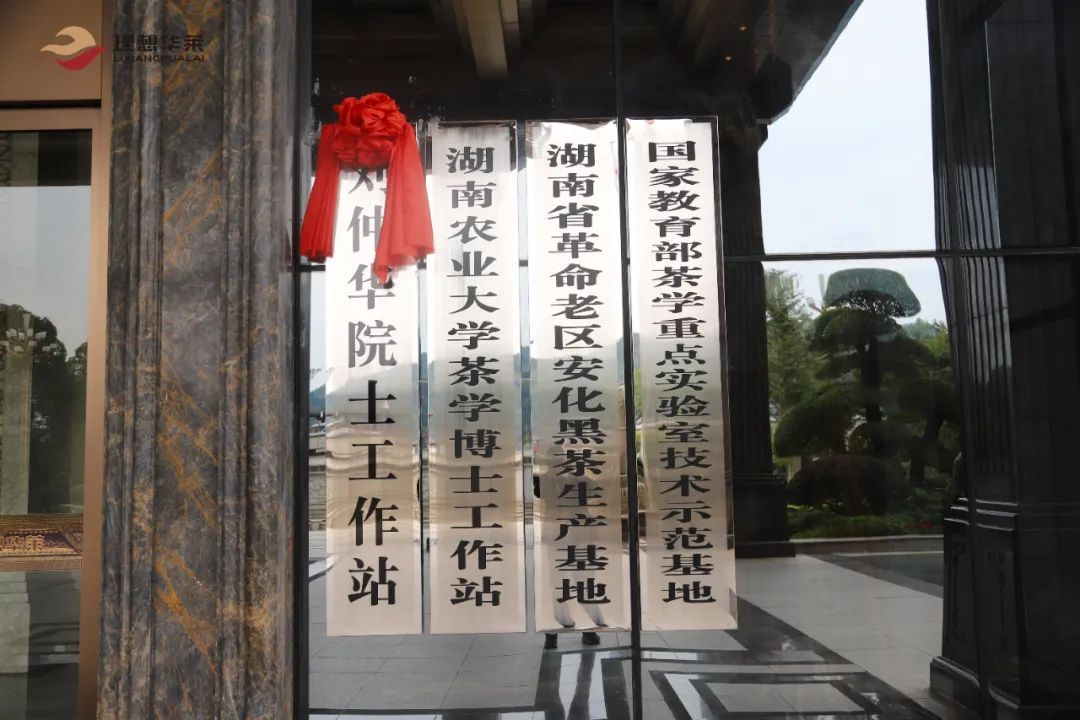 理想华莱
LIXIANGHUALAI
刘仲华院士工作站
湖南农业大学茶学博士工作站
湖南省革命老区安化黑茶生产基地
国家教育部茶学重点实验室技术示范基地
华莱